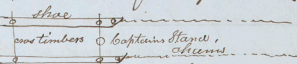 shoe
cros timbers
Captains Stand,
chains